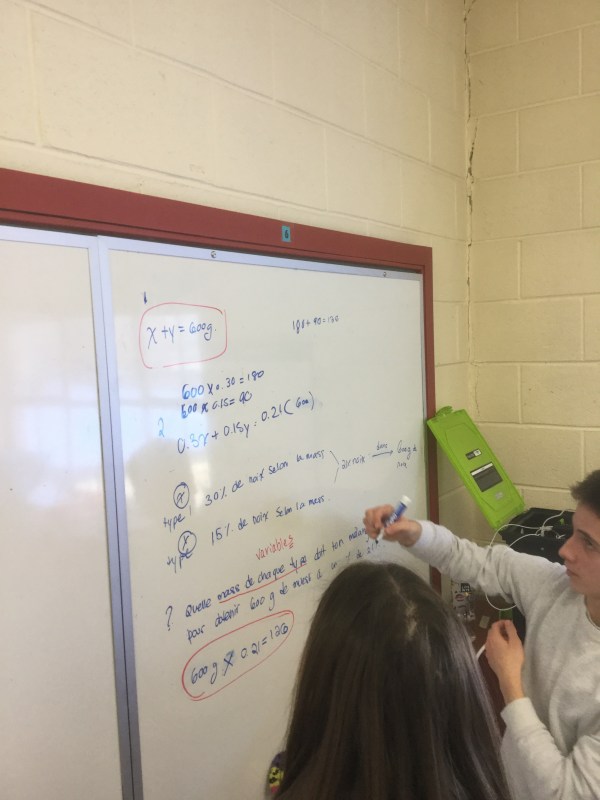 1
x + y = 600g.
600 x 0.30 = 180
600 x 0.15 = 90
2 0.3x + 0.15y = 0.21(600)
x
type 1 30% de noix selon la mass
y
type 15% de noix selon la mass.
variables
? Quelle mass de chaque type doit ton
pour obtenir 600 g de mass
600 g x 0.21 = 126